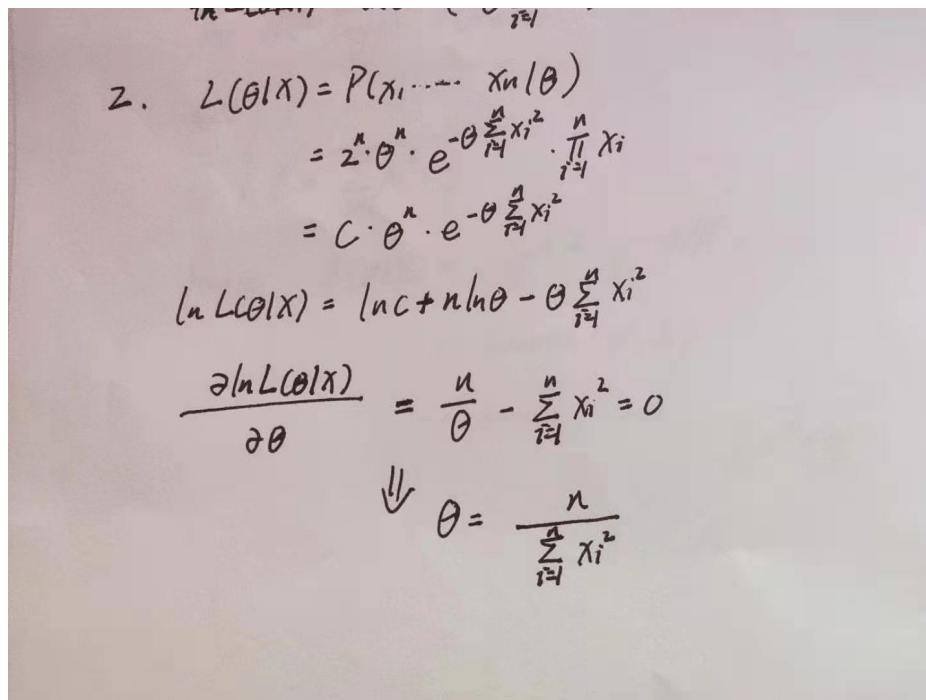 2. L(θ|X) = P(x₁ ····· xn|θ)
= 2ⁿ·θⁿ·e^{-θ∑_{i=1}^{n}xi²}·∏_{i=1}^{n} xi
= C·θⁿ·e^{-θ∑_{i=1}^{n}xi²}
ln L(θ|X) = lnC + n lnθ - θ∑_{i=1}^{n} xi²
∂lnL(θ|X)/∂θ = n/θ - ∑_{i=1}^{n} xi² = 0
⇓ θ = n/∑_{i=1}^{n} xi²